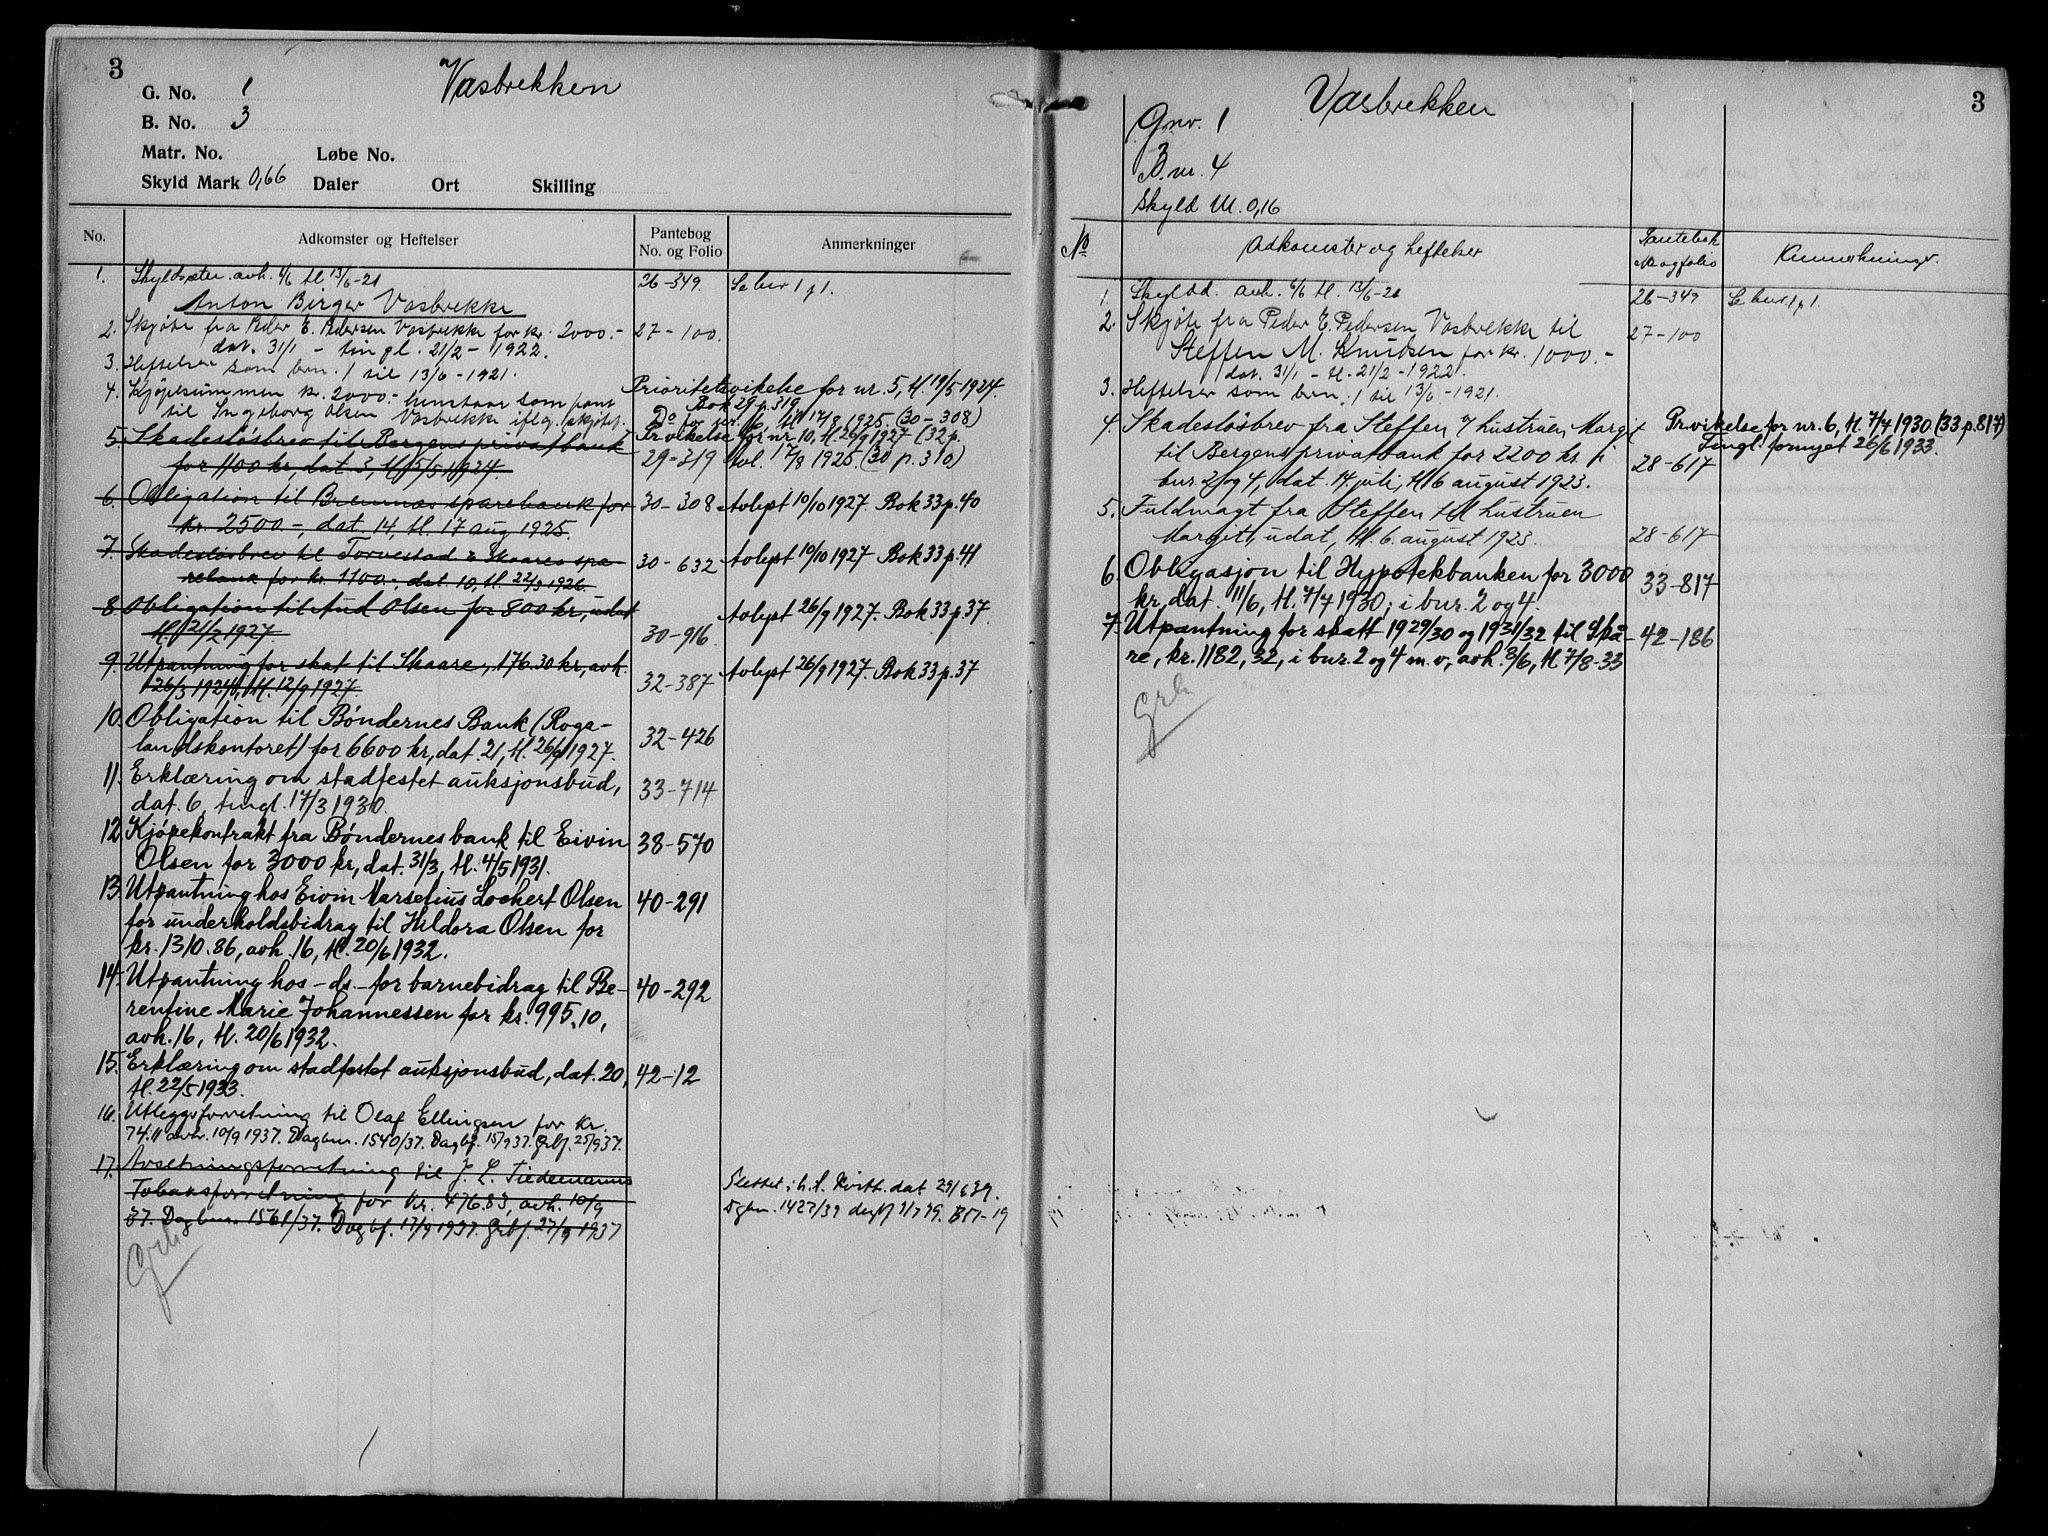 3
Vasbrekken
G. No. 1
B. No. 3
Matr. No. Løbe No.
Skyld Mark 0,66 Daler Ort Skilling
No.
Adkomster og Heftelser
Pantebog
No. og Folio
Anmerkninger
1. avh. 6/6 tl. 13/6-21 26-349. Se bnr 1 p 1.
Anton Birger Vasbrekke
2. Skjøte fra Peder E. Pedersen Vasbrekke for kr. 2000.- 27-100.
dat. 31/1 - tingl. 21/2 - 1922.
3. Heftelser som bnr. 1 til 13/6-1921.
4. Kjøpesummen kr. 2000.- henstaar som pant Prioritetsvikelse for nr. 5, tl. 19/5 1924.
til Ingeborg Olsen Vasbrekke iflg. skjøtet. Bok 29 p. 319
Do for nr. 6, tl. 17/8 1925. (30-308)
5. Skadesløsbrev til Bergens privatbank Pr. vikelse for nr 10, tl. 26/9 1927 (32 p.
for 1100 kr, dat. 3, tl. 15/5 1924. 29-319 Avl. 17/8 1925. (30 p. 310)
6. Obligation til Bremnes sparebank for 30-308 Avlyst 10/10 1927. Bok 33 p. 40
kr. 2500.-, dat. 14, tl. 17 aug 1925.
7. Skadesløsbrev til Torvestad & Skaares spa- 30-632 Avlyst 10/10 1927. Bok 33 p. 41
rebank for kr. 1100.-, dat. 10, tl. 22/3 1926.
8. Obligation til Aud Olsen for 800 kr, udat Avlyst 26/9 1927. Bok 33 p. 37.
tl. 21/2 1927. 30-916
9. Utpantning for skat til Skaare, 176.30 kr, avh. Avlyst 26/9 1927. Bok 33 p. 37
26/3 tl. 12/9 1927. 32-387
10. Obligation til Bøndernes Bank (Roga-
landskontoret) for 6600 kr, dat. 21, tl. 26/9 1927. 32-426
11. Erklæring om stadfestet auksjonsbud,
dat. 6, tingl. 17/3 1930. 33-714
12. Kjøpekontrakt fra Bøndernes bank til Eivin 38-570
Olsen for 3000 kr, dat. 31/3, tl. 4/5 1931.
13. Utpantning hos Eivin Marselius Lockert Olsen 40-291
for underholdsbidrag til Hildora Olsen for
kr. 1310.86, avh. 16, tl. 20/6 1932.
14. Utpantning hos - ds - for barnebidrag til Be- 40-292
rentine Marie Johannessen for kr. 995,10,
avh. 16, tl. 20/6 1932.
15. Erklæring om stadfestet auksjonsbud, dat. 20, 42-12
tl. 22/5 1933.
16. Utleggsforretning til Olaf Ellingsen for kr.
74.11 avh. 10/9 1937. Dagbnr. 1540/37. Dagbf. 15/9 37. Grbf. 25/9 37.
17. Avsetningsforretning til J. L. Tiedemanns
Tobaksforretning for kr. 476.83, avh. 10/9 Slettet i h.t. kvitt. dat 29/6 39.
37. Dagbnr. 1561/37. Dagbf. 17/9 1937. Grbf. 27/9 1937 Dgbnr. 1427/39 1/7 39. B17-19
Grb
3
Vasbrekken
Gnr. 1
B.nr. 4
Skyld M. 0,16
No
Adkomster og heftelser
Pantebok
No og folio
Anmerkninger.
1. Skyldd. avh. 6/6 tl. 13/6-21 26-349 Se bnr. 1 p 1.
2. Skjøte fra Peder E. Pedersen Vasbrekke til 27-100
Steffen M. Knudsen for kr. 1000.-
dat. 31/1 - tl. 21/2 - 1922.
3. Heftelser som bnr. 1 til 13/6-1921.
4. Skadesløsbrev fra Steffen og hustruen Margit Pr. vikelse for nr. 6, tl. 7/7 1930 (33 p. 817)
til Bergens privatbank for 2200 kr. i 28-617 Tingl. fornyet 26/6 1933.
bnr. 2 og 4, dat. 14. juli, tl. 6 august 1923.
5. Fuldmagt fra Steffen til hustruen
Margit, udat, tl. 6. august 1923. 28-617
6. Obligasjon til Hypotekbanken for 3000 33-817
kr, dat. 11/6, tl. 7/7 1930; i bnr. 2 og 4.
7. Utpantning for skatt 1929/30 og 1931/32 til Skå- 42-186
re, kr. 1182,32, i bnr. 2 og 4 m.v, avh. 8/6, tl. 7/8-33
Grb